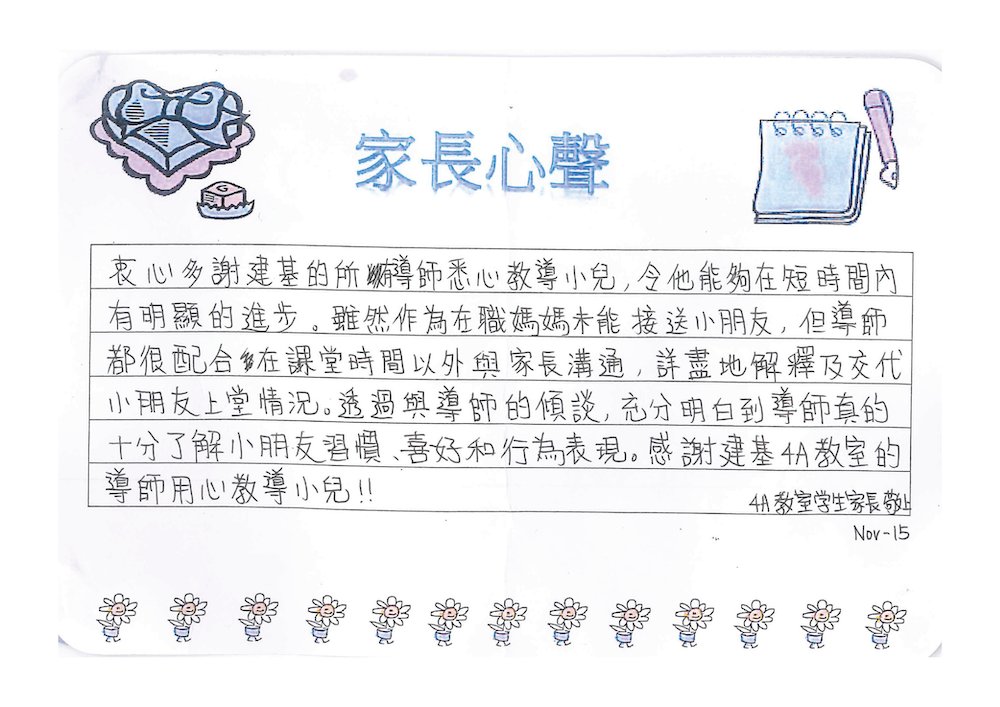 家長心聲
衷心多謝建基的所導師悉心教導小兒,令他能夠在短時間內
有明顯的進步。雖然作為在職媽媽未能接送小朋友,但導師
都很配合在課堂時間以外與家長溝通,詳盡地解釋及交代
小朋友上堂情況。透過與導師的傾談,充分明白到導師真的
十分了解小朋友習慣、喜好和行為表現。感謝建基4A教室的
導師用心教導小兒!!
4A教室学生家長敬上
Nov-15
G